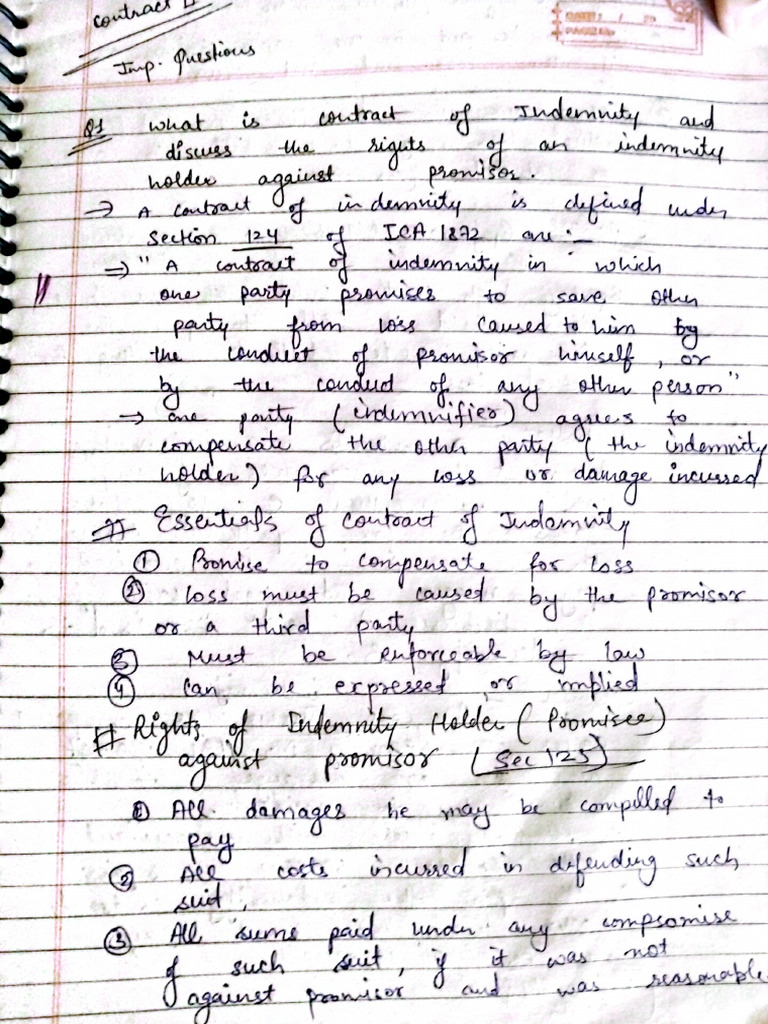 Contract II
Imp. Questions
Q1 What is contract of Indemnity and
discuss the rights of an indemnity
holder against promisor.
→ A contract of indemnity is defined under
Section 124 of ICA 1872 are :-
⇒ " A contract of indemnity in which
one party promises to save other
party from loss caused to him by
the conduct of promisor himself, or
by the conduct of any other person"
→ one party (indemnifier) agrees to
compensate the other party ( the indemnity
holder) for any loss or damage incurred
# Essentials of contract of Indemnity
① Promise to compensate for loss
② Loss must be caused by the promisor
or a third party
③ Must be enforceable by law
④ Can be expressed or implied
# Rights of Indemnity Holder (Promisee)
against promisor (Sec 125)
① All damages he may be compelled to
pay
② All costs incurred in defending such
suit,
③ All sums paid under any compromise
of such suit, if it was not
against promisor and was reasonable